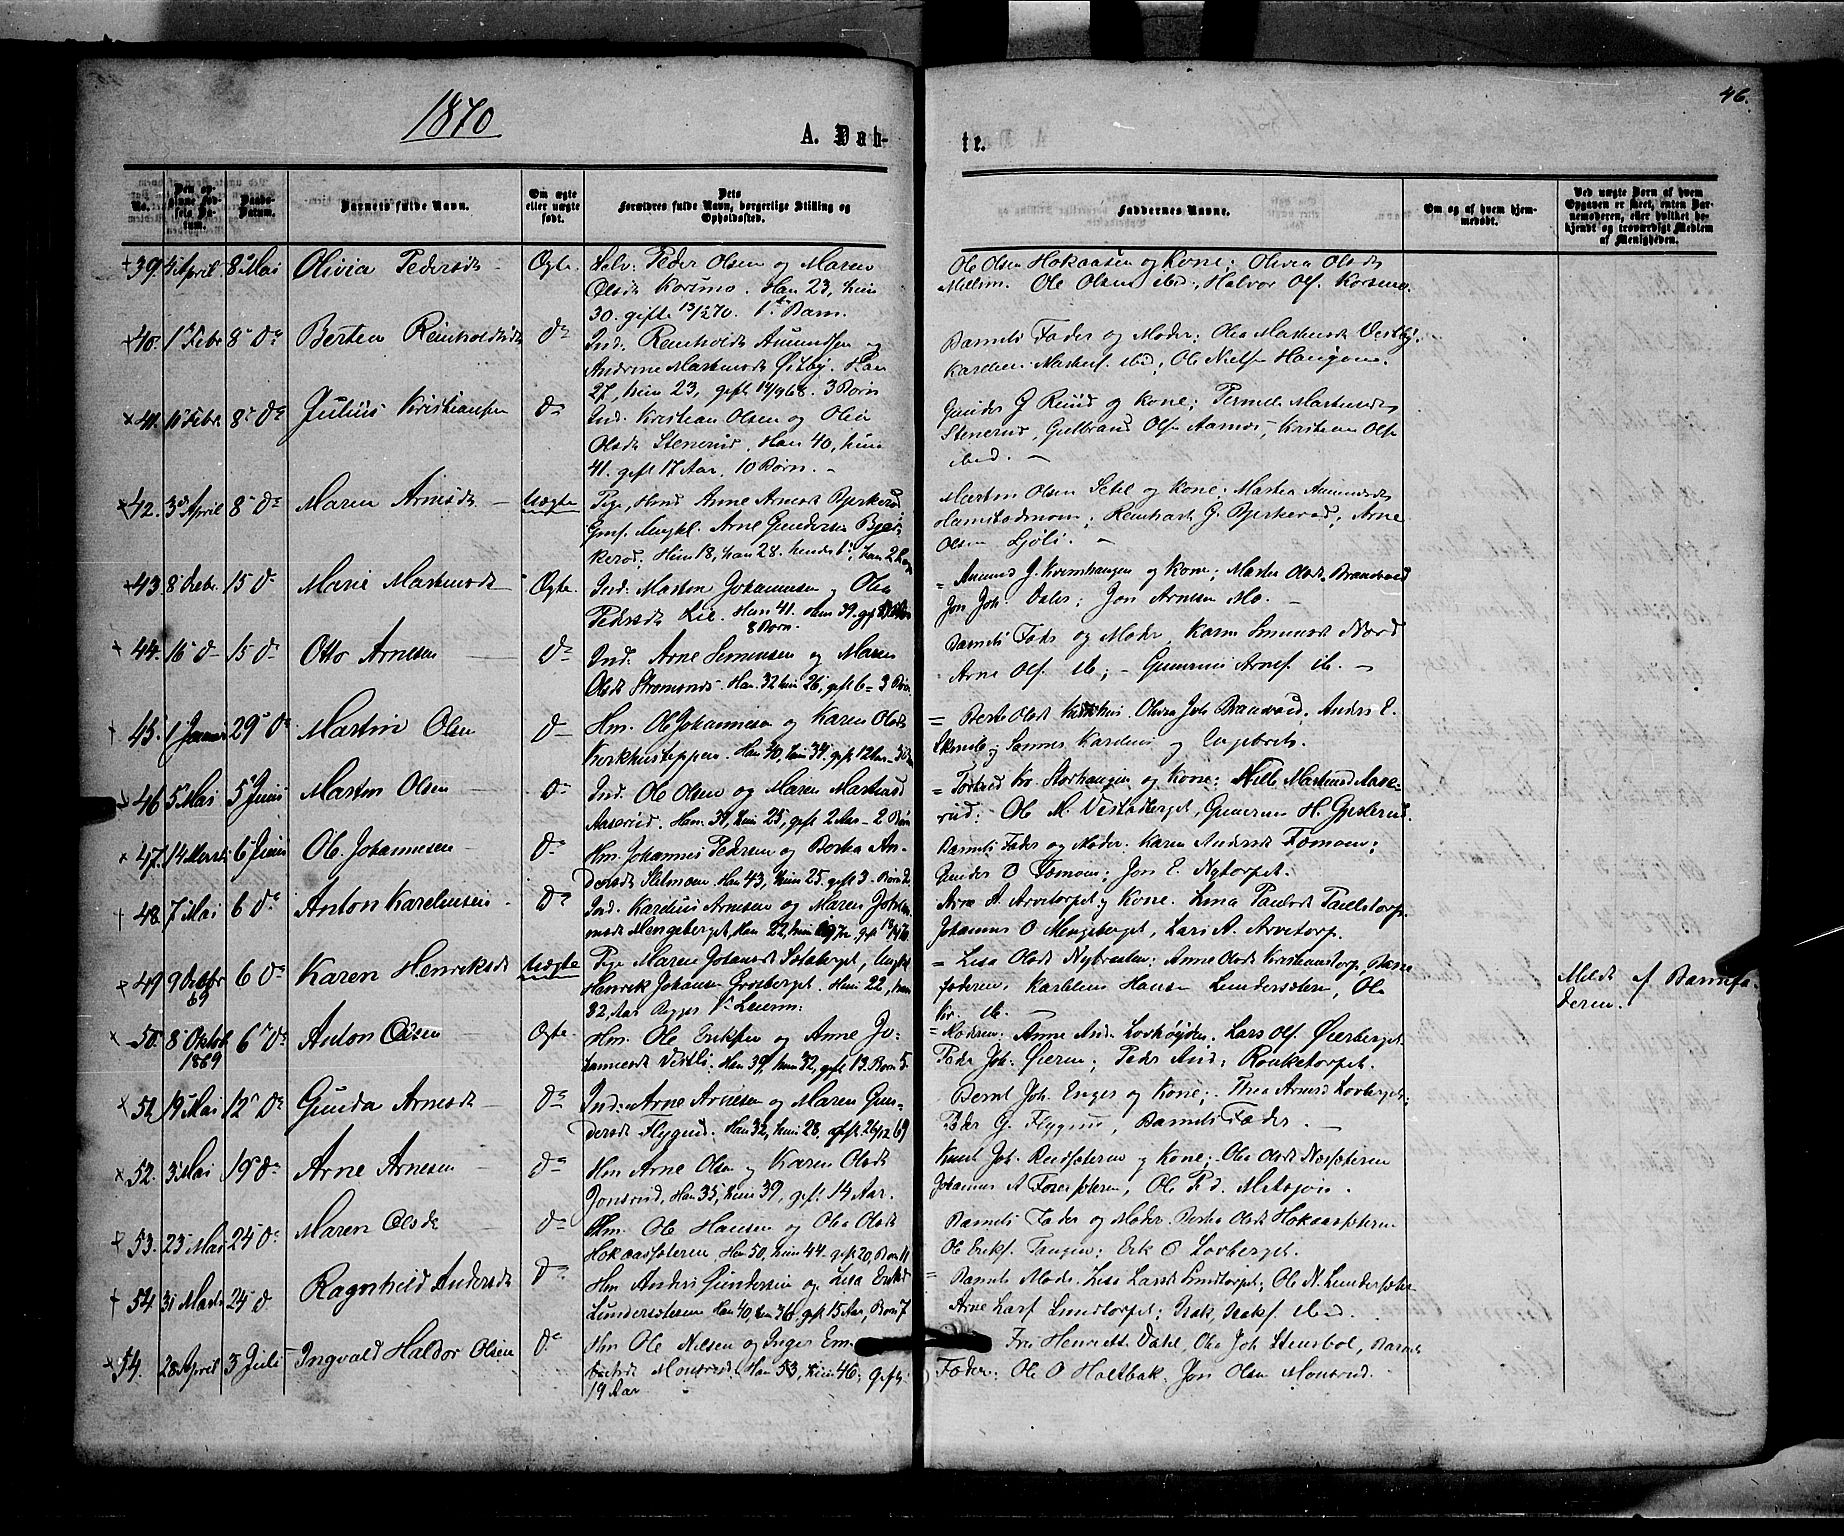 1870
46.
A. Dab-
te.
No.
Den op-
givne Fød-
sels Da-
tum.
Daabs-
Datum.
Barnets fulde Navn.
Om ægte
eller uægte
født.
Dets
Forældres fulde Navn, borgerlige Stilling og
Opholdssted.
Faddernes Navne.
Om og af hvem hjem-
medøbt.
Ved uægte Børn af hvem
Opgaven er skeet, enten Bar-
nemoderen, eller hvilket be-
kjendt og troværdigt Medlem
af Menigheden.
39 4 April 8 Mai Olivia Pedersdt Ægte Selv: Peder Olsen og Maren
Olsdt Korsmo. Han 23, hun
30. gifte 13/2 70. 1ste Barn.
Ole Olsen Hokaasen og Kone; Olivia Olsdt
Ole Olsen ibid., Halvor Ols. Korsmo.
40. 1 Febr 8 Do Berten Reinholdtsdt Do Ind. Reinholdt Amundsen og
Andrine Martinsdt Østby. Han
27, hun 23, gift 14/9 68. 3 Børn
Barnets Fader og Moder; Olea Martinsdt Vestby,
ibid; Ole Nielse Haugen.
41. 11 Febr. 8 Do Julius Kristiansen Do Ind. Kristian Olsen og Olia
Olsdt Stenerud. Han 40, hun
41. gift 17 Aar, 10 Børn.
Gunder G Ruud og Kone; Pernille Martinsdt
Stenerud, Gulbrand Olsen Aamo, Kristian Olsen
ibid.
42. 3 April 8 Do Maren Arnesdt Uægte Pige, Anne Arnesdt Bjerkerud
Arne Gundersen Bjer-
kerud. Hun 18, han 28. hendes 1ste, han 2
Martin Olsen Sætil og Kone; Martea Amundsdt
Reinhart G. Bjerkerud; Arne
Olsen Ljøli.
43. 8 Febr. 15 Do Marie Martinsdt Ægte. Ind: Martin Johannesen og Olea
Pedersdt Lie. Han 41. Hun 39. gift
8 Børn.
Amund J. og Kone; Marthe Olsdt Brandvold
Jon Joh. Dalen; Jon Arnesen Mo.
44. 16 D 15 Do Otto Arnesen Do Ind. Arne Simensen og Maren
Olsdt Strømsnes. Han 32 hun 26, gift 6 - 3 Børn
Barnets Fader og Moder, Karen Simensdt Nord
Arne Ols. ib; - Gunerius Arnes. ib.
45. 1 Januar 29 Do Martin Olsen D Hm. Ole Johannesen og Karen Olsdt
Kirkhusteppen. Han 40, hun 34. gift 12 Aar - 3 Børn
Berte Olsdt Kirkhus. Olivia Joh Brandvold. Anders E.
og Engebret.
46 5 Mai 5 Juni Martin Olsen D Ind. Ole Olsen og Maren Martinsd
Aaserud. Han 39, hun 25, gift 2 Aar - 2 Børn
Torkild Kr. Storhaugen og Kone; Nille Martinsd Aase-
rud; Ole M. Vestadberget, Gunerius H. Gjeskerud.
47. 14 Marts 6 Juni Ole Johannesen Do Hm. Johannes Pedersen og Bertha An-
dersdt Sletmoen. Han 43, hun 25. gift 3. Børn 2.
Barnets Fader og Moder. Karen Andersdt Tomoen;
Gunder O Tomoen; Jon E. Nytorpet.
48. 7 Mai 6 Do Anton Karelinsen Do Ind. Karelius Arnesen og Maren Johan-
nesdt Mengeberget, Han 22, hun
Arne A. Arvetorpet og Kone. Lina Paulsdt Paulstorp.
Johannes O Mengeberget, Lars A. Arvetorp.
49 9 Octbr
69 6 Do Karen Henriksdt Uægte Pige Maren Johansdt Solaberget, Ungk
Henrik Johansen Grasberget. Hun 22, han
32, Aar Begges 1ste Leierm:
Lisa Olsdt Nybraaten; Anne Olsdt Kristianstorp, Barne-
faderen. Karl Hansen Lundersæteren, Ole
Kr. ib.
Meldt af Barnefa-
deren.
50. 8 Oktob
1869 6 Do Anton Olsen Ægte. Hm. Ole Eriksen og Anne Jo-
hannesdt Vestli. Han 39, hun 32, gift 13. Børn 5.
Moderen; Anne And. Lovhøyden. Lars Ols. Øierberget.
Peder Joh. Øieren; Peder And; Rouketorpet.
51 19 Mai 12 Do Gunda Arnesdt Do Ind: Arne Arnesen og Maren Gun-
dersdt Flygind. Han 32, hun 28, gift 26/12 69
Bernt Joh. Enger og Kone; Thea Arnesd Lovberget;
Peder G. Flygind, Barnets Fader.
52. 3 Mai 19 Do Arne Arnesen Do Hm Arne Olsen og Karen Olsdt
Jonsrud, Han 35, hun 39, gift 14 Aar.
Knud Joh. Rudsæteren og Kone; Olea Olsdt Næssæteren
Johannes A Fosersæteren, Ole Pd. Mitsjøn.
53. 23 Mai 24 Do Maren Olsdt Do Hm. Ole Hansen og Olea Olsdt
Hokaassæteren Han 50, hun 44. gift 20, Børn 11
Barnets Fader og Moder. Bertha Olsdt Hokaassæteren
Ole Eriks. Trangen; Erik O Lovberget.
54. 31 Marts 24 D. Ragnhild Andersdt Do Hm Anders Gundersen og Lisa Eriksd
Lundersæteren Han 40, hun 36, gift 15 Aar, Børn 7
Barnets Moder. Lisa Larsdt Lundtorpet; Ole N. Lundersæter
Arne Lars. Lundtorpet; Isak Isaks. ibid.
54. 28 April 3 Juli Ingvald Haldor Olsen Do Hm Ole Nielsen og Inger Em-
bretsdt Monsrud. Han 53, hun 46; gift
19 Aar
Frk Henriette Dahl, Olea Joh Stensbøl, Barnets
Fader; Ole O Holtbak. Jon Olsen Monsrud.